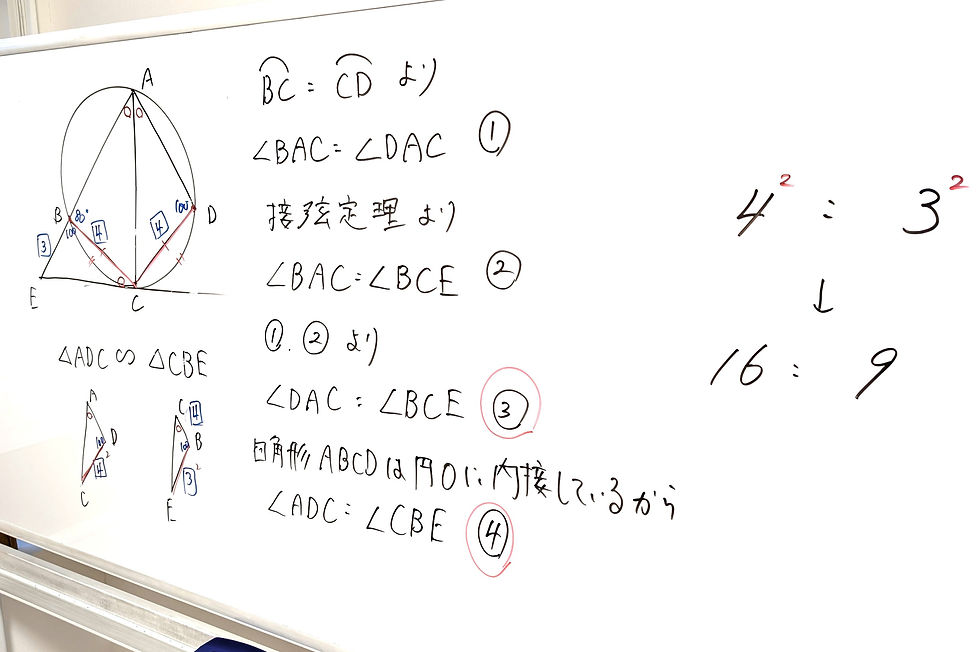 A
B
80°
100
D
100
4
4
3
E
C
△ADC∽△CBE
A
100
D
4
2
C
C
4
100
B
3
2
E
BC = CD より
∠BAC = ∠DAC ①
接弦定理 より
∠BAC = ∠BCE ②
①. ② より
∠DAC = ∠BCE ③
四角形 ABCDは円Oに内接しているから
∠ADC = ∠CBE ④
4² : 3²
↓
16 : 9